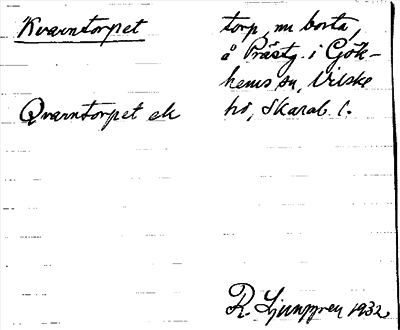 Kvarntorpet
torp, nu borta,
å Prästg. i Gök-
hems sn, Vilske
hd, Skarab. l.
Qvarntorpet ek
R. Ljunggren 1932.